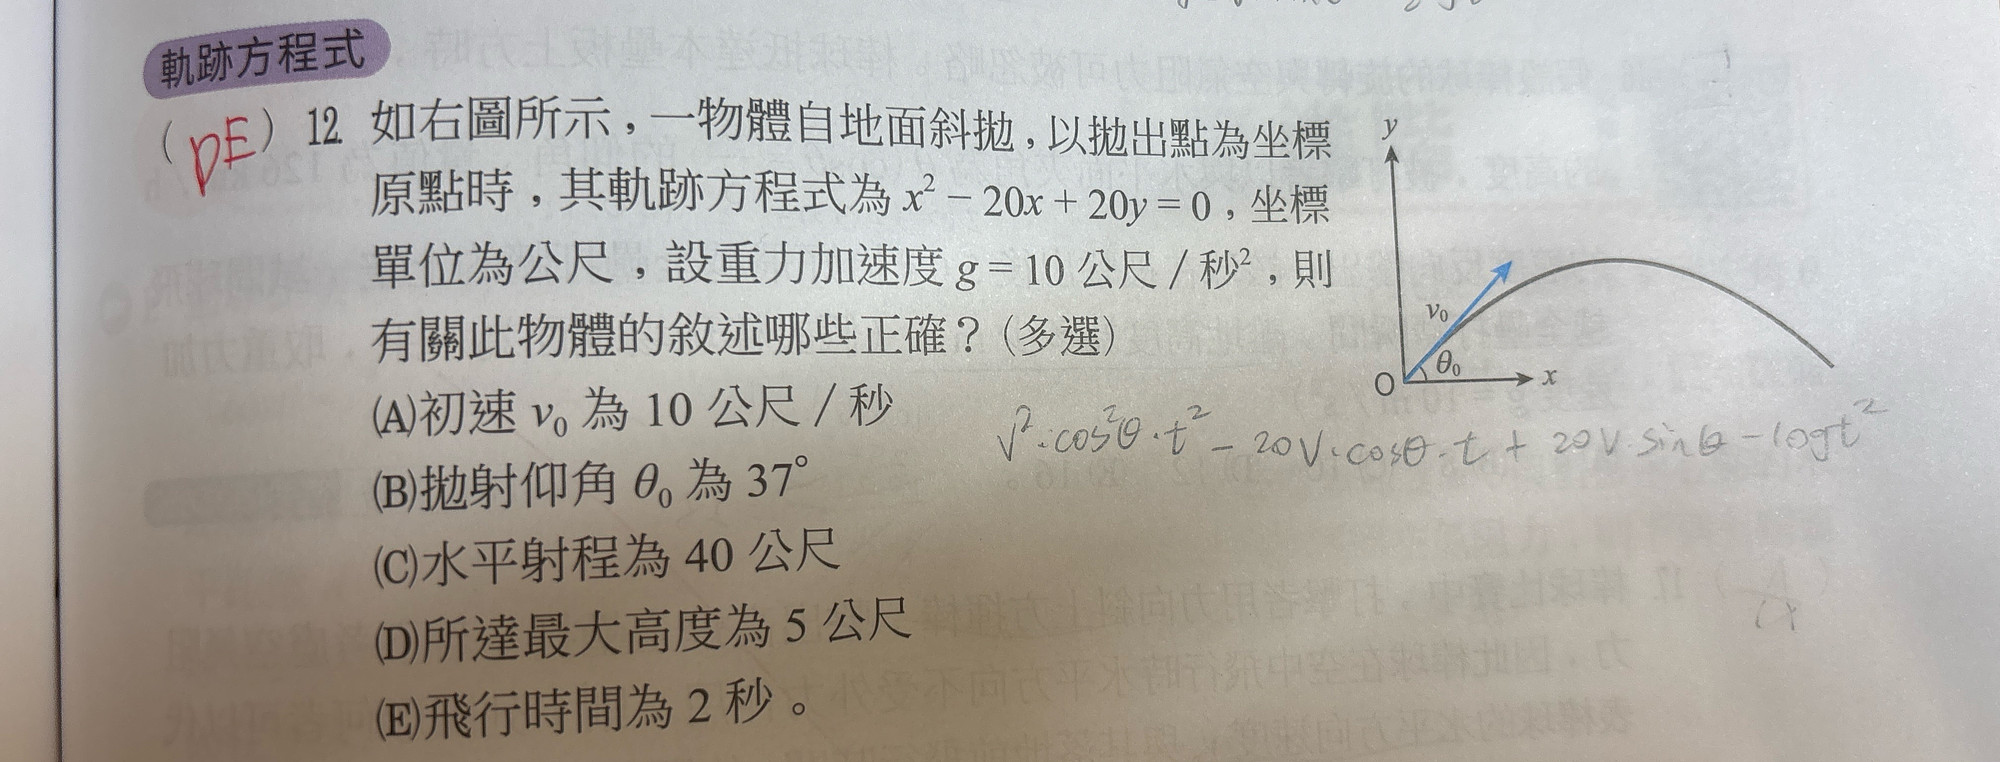 軌跡方程式
( DE ) 12. 如右圖所示，一物體自地面斜拋，以拋出點為坐標
原點時，其軌跡方程式為 x² − 20x + 20y = 0，坐標
單位為公尺，設重力加速度 g = 10 公尺 / 秒²，則
有關此物體的敘述哪些正確？(多選)
(A)初速 v₀ 為 10 公尺 / 秒
(B)拋射仰角 θ₀ 為 37°
(C)水平射程為 40 公尺
(D)所達最大高度為 5 公尺
(E)飛行時間為 2 秒。
y
v₀
θ₀
O
x
V²·cos²θ·t² − 20V·cosθ·t + 20V·sinθ − 10gt²